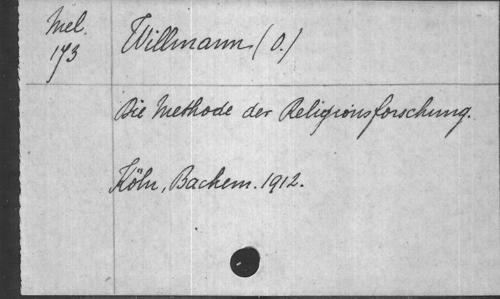 Mel.
173
Willmann (O.)
Die Methode der Religionsforschung.
Köln, Bachem. 1912.